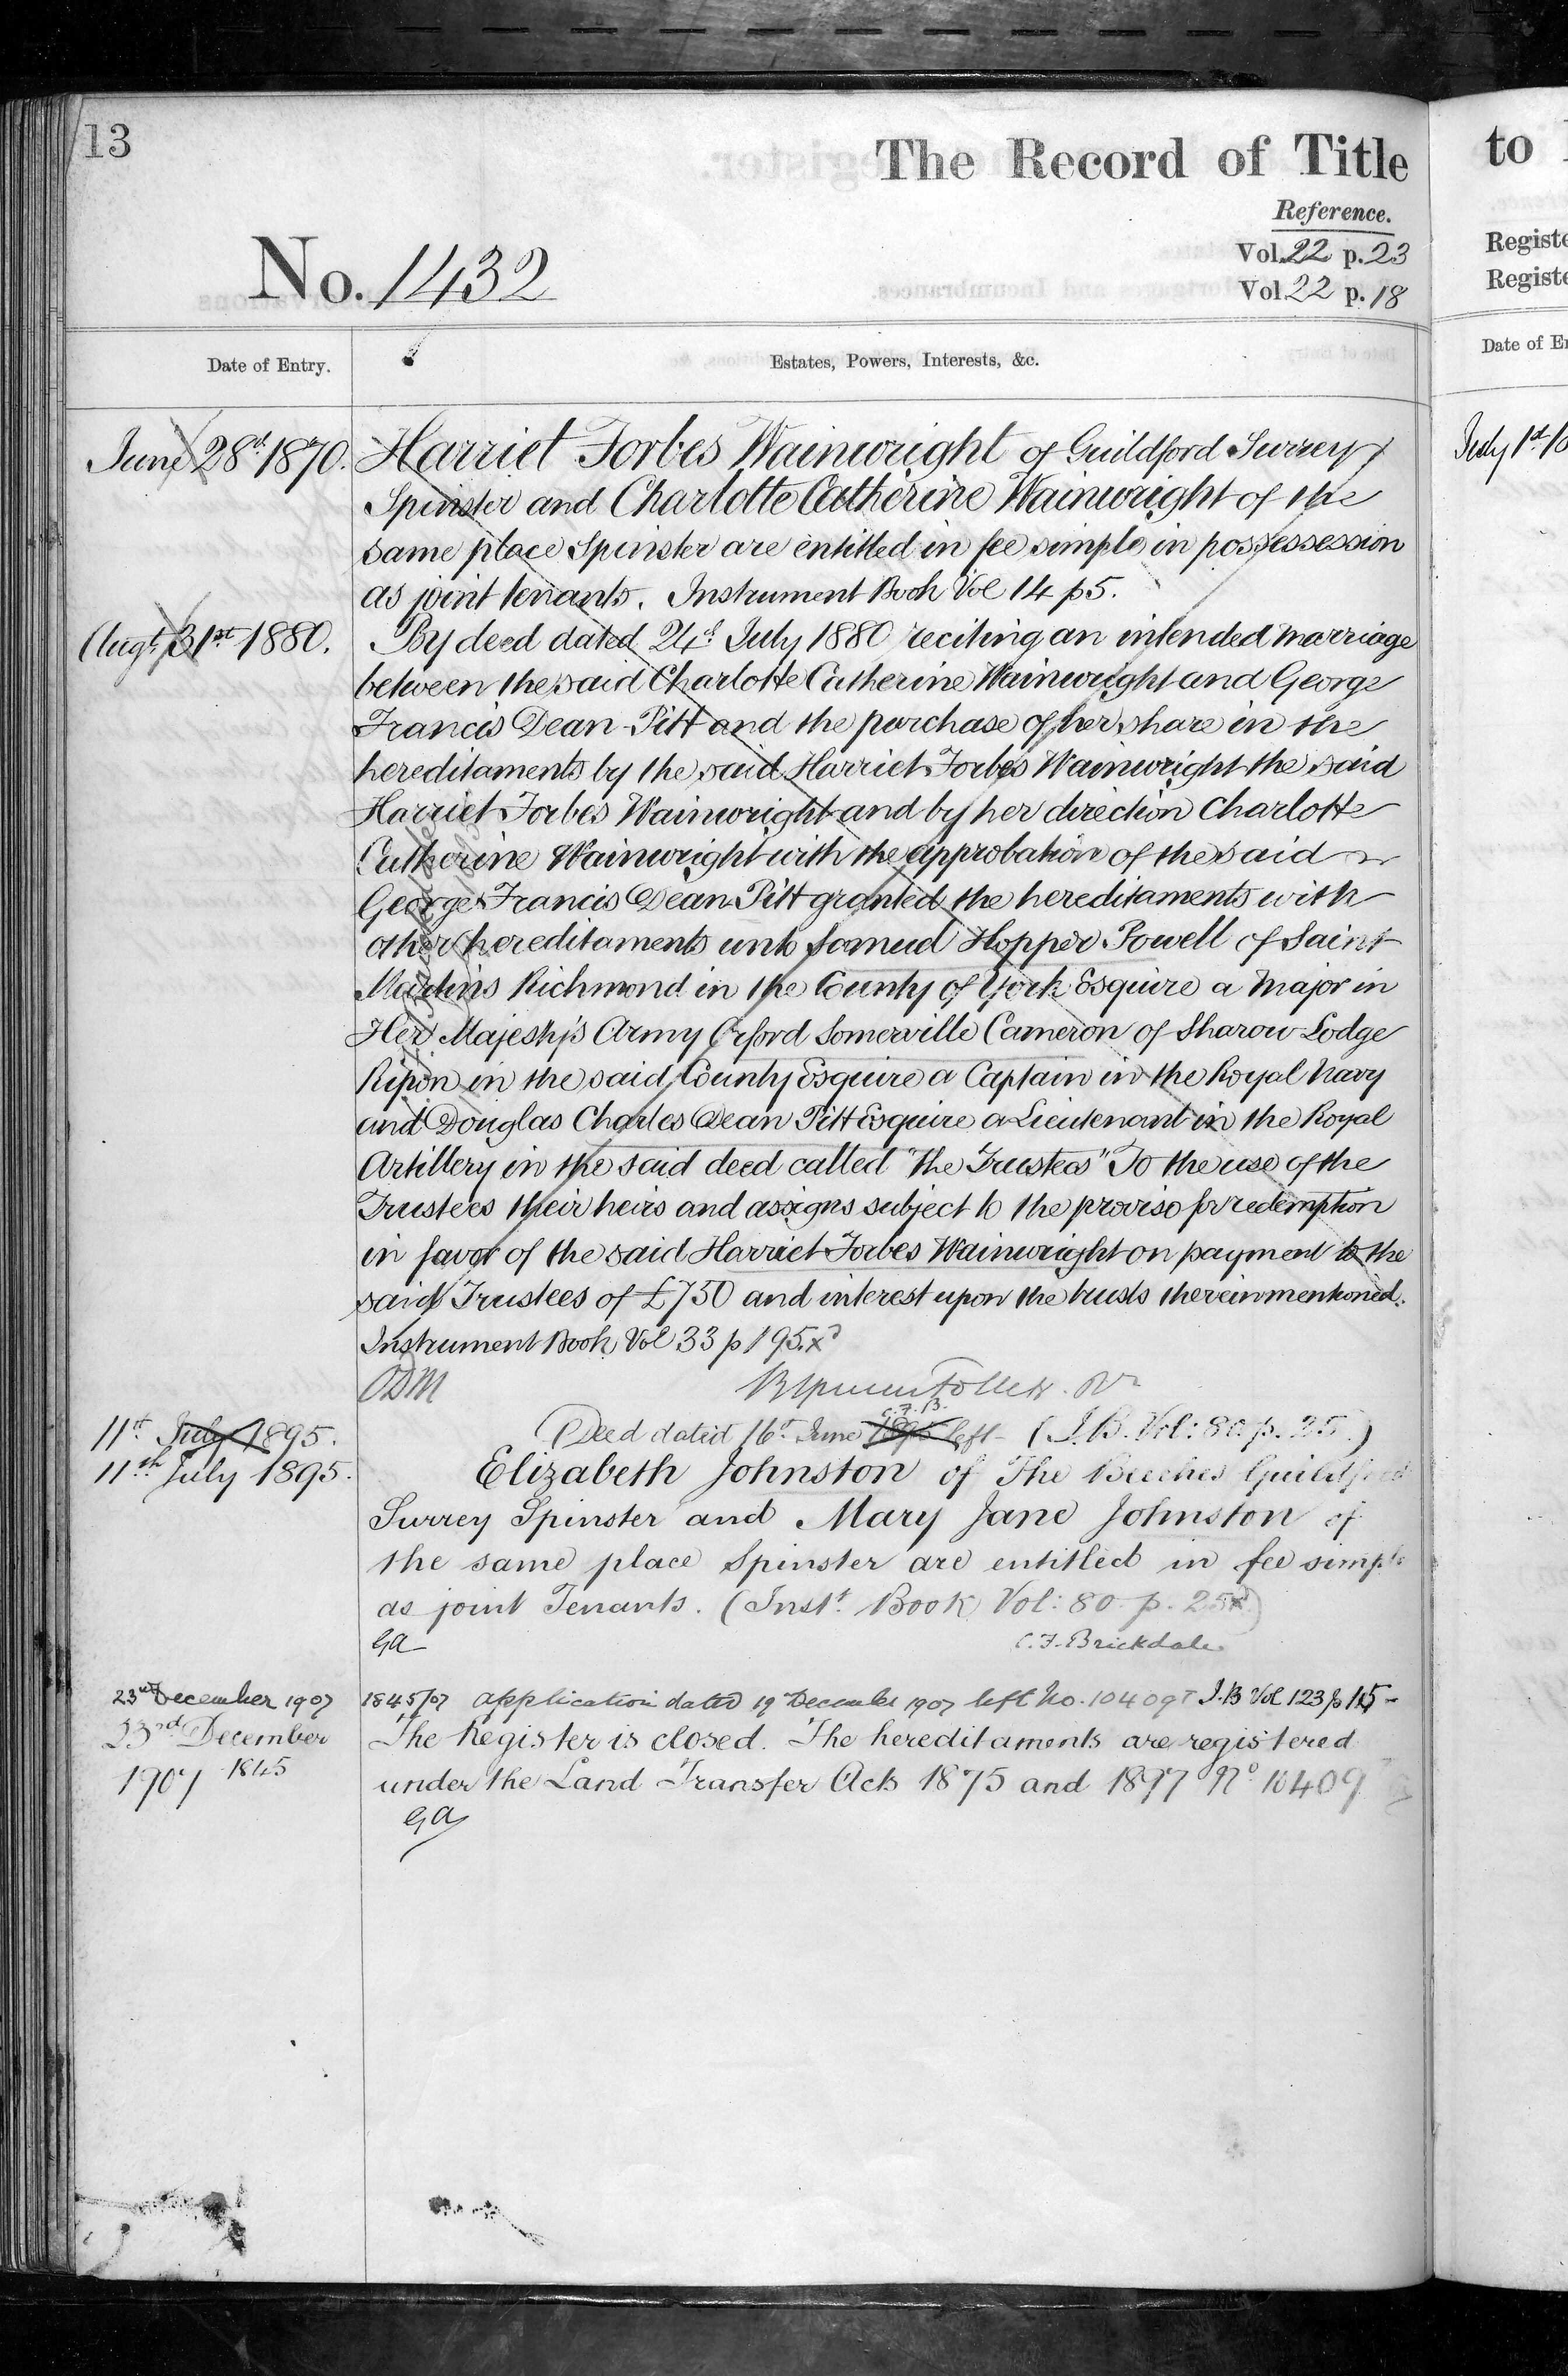 13
The Record of Title
Reference.
No. 1432
Vol. 22 p. 23
Vol 22 p. 18
Date of Entry.
Estates, Powers, Interests, &c.
June 28th 1870.
Harriet Forbes Wainwright of Guildford Surrey
Spinster and Charlotte Catherine Wainwright of the
same place Spinster are entitled in fee simple in possessession
as joint tenants. Instrument Book Vol 14 p 5.
Augt. 31st 1880.
By deed dated 24th July 1880 reciting an intended marriage
between the said Charlotte Catherine Wainwright and George
Francis Dean-Pitt and the purchase of her share in the
hereditaments by the said Harriet Forbes Wainwright the said
Harriet Forbes Wainwright and by her direction Charlotte
Catherine Wainwright with the approbation of the said
George Francis Dean Pitt granted the hereditaments with
other hereditaments unto Samuel Hopper Powell of Saint
Martins Richmond in the County of York Esquire a Major in
Her Majesty's Army Orford Somerville Cameron of Sharow Lodge
Ripon in the said County Esquire a Captain in the Royal Navy
and Douglas Charles Dean Pitt Esquire a Lieutenant in the Royal
Artillery in the said deed called "the Trustees" To the use of the
Trustees their heirs and assigns subject to the proviso for redemption
in favor of the said Harriet Forbes Wainwright on payment to the
said Trustees of £750 and interest upon the trusts therein mentioned.
Instrument Book Vol 33 p 195.
ODM
11th July 1895.
Deed dated 16th June 1895 left (I.B. Vol: 80 p. 25.)
C.F.B.
11th July 1895.
Elizabeth Johnston of The Beeches Guildford
Surrey Spinster and Mary Jane Johnston of
the same place Spinster are entitled in fee simple
as joint Tenants. (Inst. Book Vol: 80 p. 25)
GA
C.F. Brickdale
23rd December 1907
1845/07 application dated 19 December 1907 left No. 10409T I.B Vol 123 p 115
23rd December
1907 1845
The Register is closed. The hereditaments are registered
under the Land Transfer Acts 1875 and 1897 No. 10409
GA
to
Registe
Registe
Date of E
July 1st 18